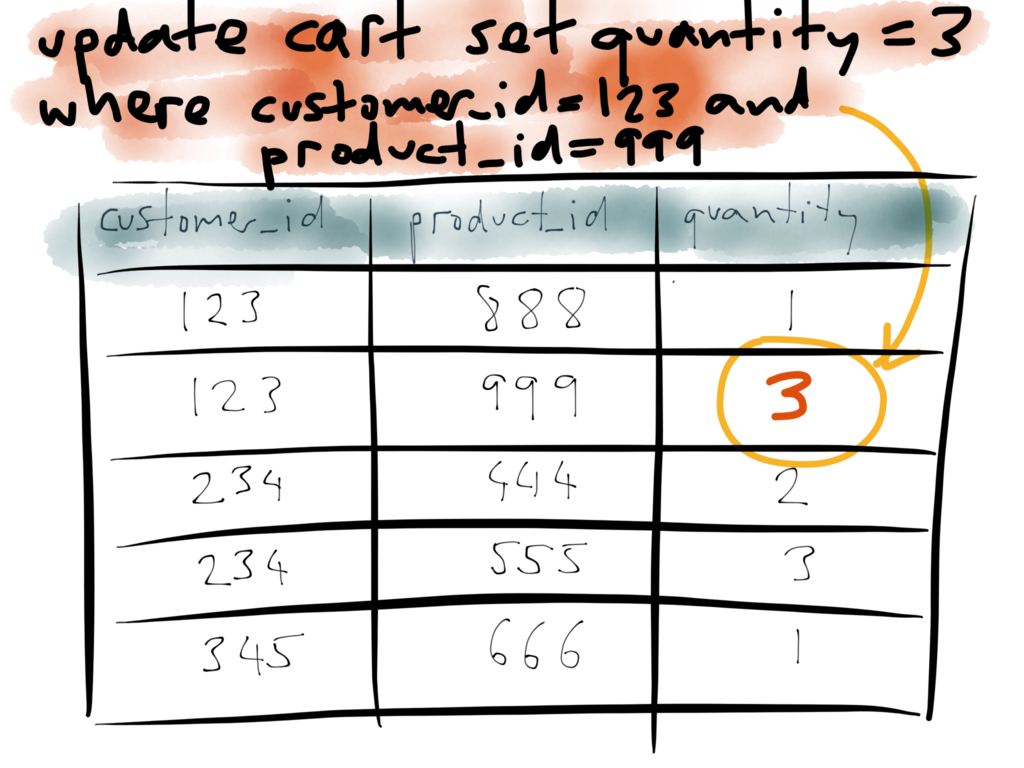 update cart set quantity = 3
where customer_id=123 and
product_id=999
customer_id product_id quantity
123 888 1
123 999 3
234 444 2
234 555 3
345 666 1